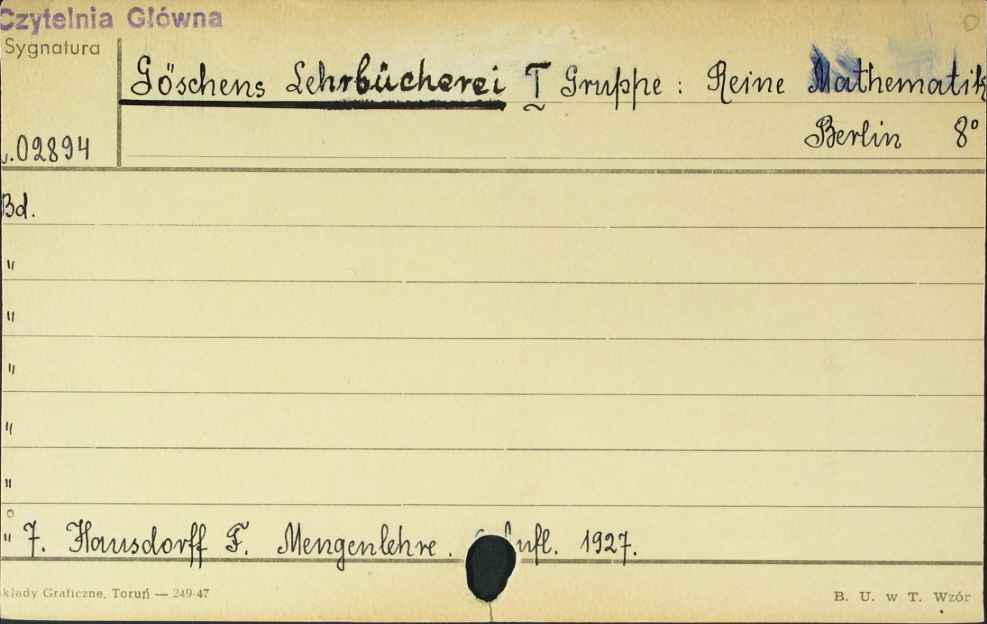 Czytelnia Główna
Sygnatura
Göschens Lehrbücherei I Gruppe : Reine Mathematik
Berlin 8°
02894
Bd.
"
"
"
"
"
" 7. Hausdorff F. Mengenlehre. ufl. 1927.
kłady Graficzne, Toruń — 249-47
B. U. w T. Wzór